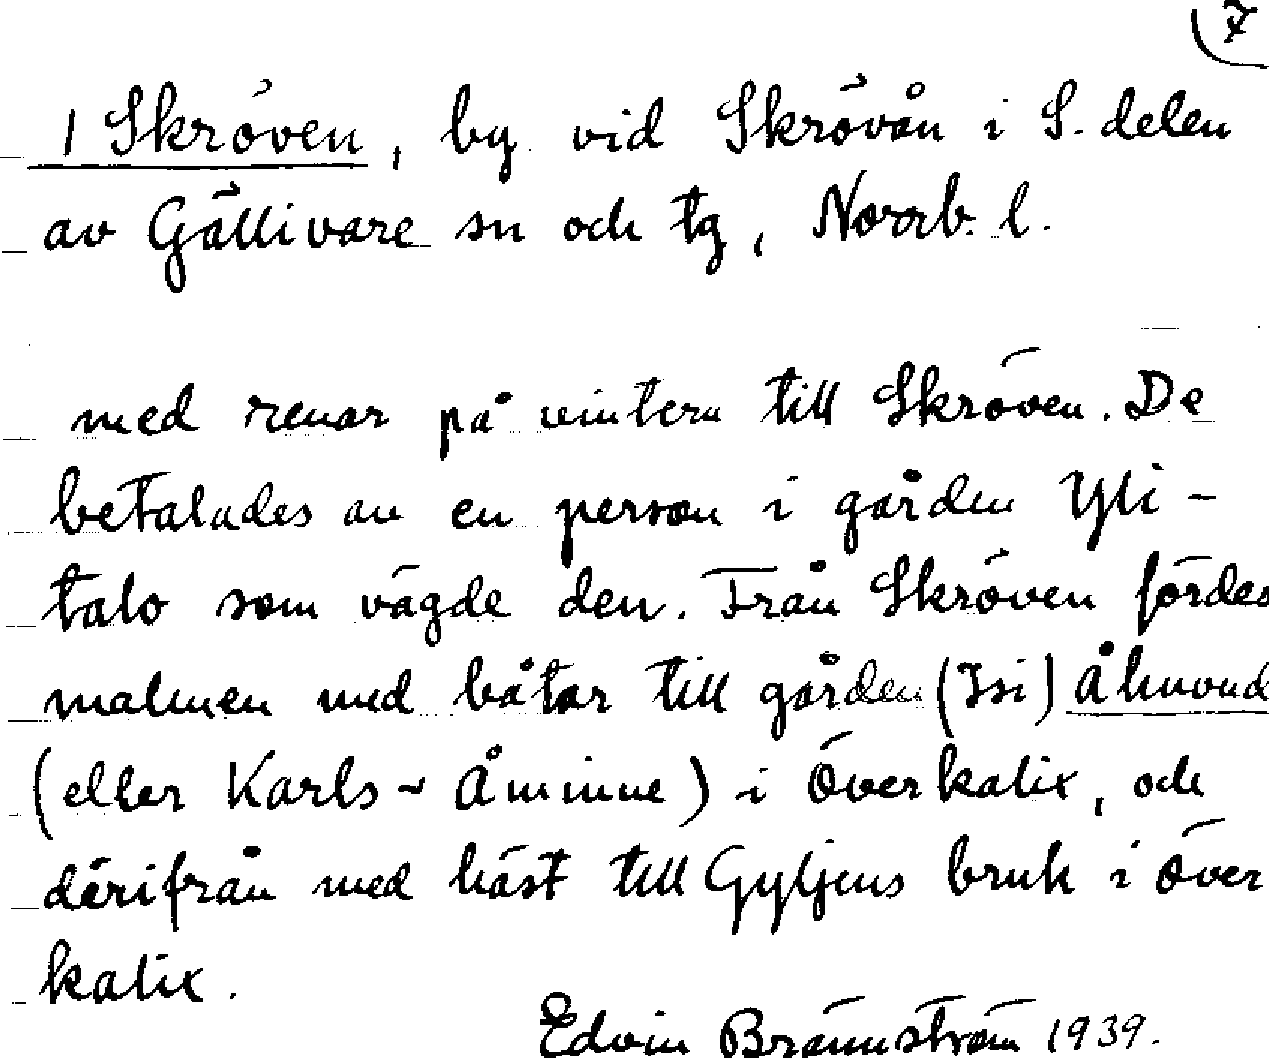 7
1 Skröven, by vid Skrövån i S. delen
av Gällivare sn och tg, Norrb. l.
med renar på vintern till Skröven. De
betalades av en person i gården Yli-
talo som vägde den. Från Skröven fördes
malmen med båtar till gården (Isi) Åhuvud
(eller Karls-Åminne) i Överkalix, och
därifrån med häst till Gyljens bruk i Över
kalix.
Edvin Brännström 1939.